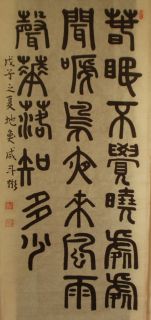 春眠不覺曉處處
聞嗁鳥夜來風雨
聲華落知多少
戊子之夏